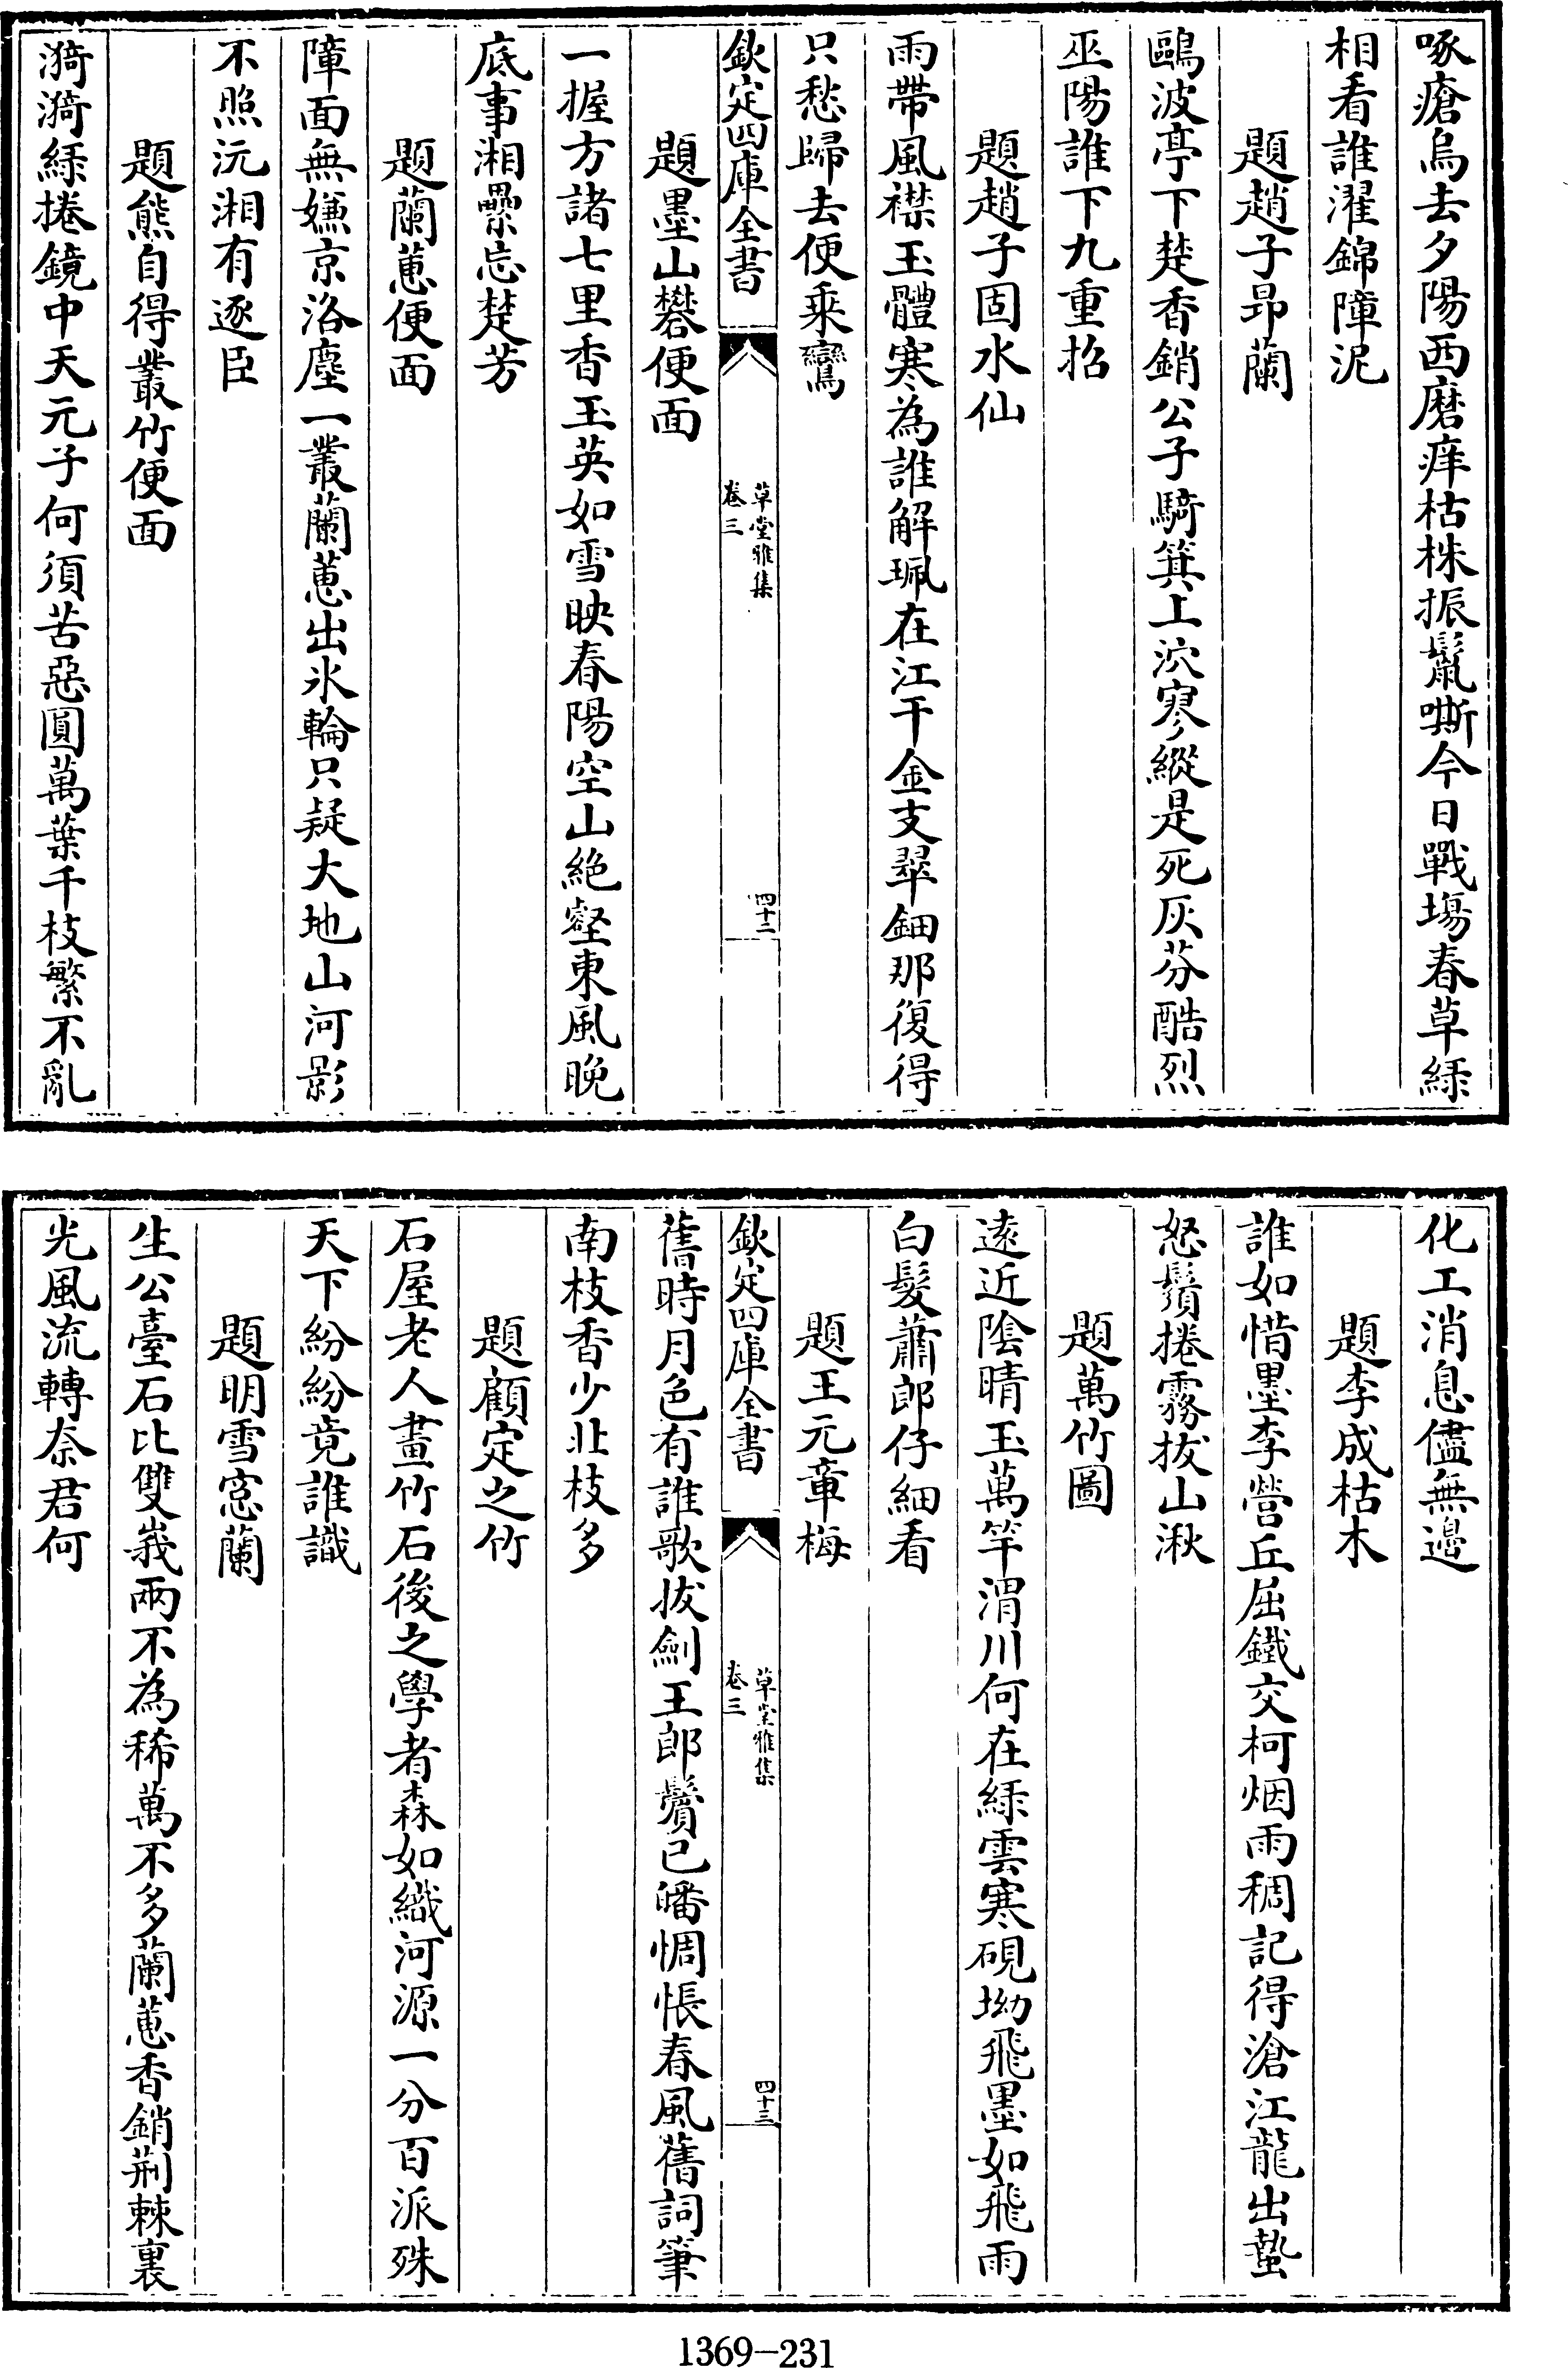 啄瘡烏去夕陽西磨痒枯株振鬛嘶今日戰場春草緑
相看誰濯錦障泥
題趙子昻蘭
鷗波亭下楚香銷公子騎箕上泬寥縱是死灰芬酷烈
巫陽誰下九重招
題趙子固水仙
雨帶風襟玉體寒為誰解珮在江干金支翠鈿那復得
只愁歸去便乘鸞
欽定四庫全書
草堂雅集
卷三
四十二
題墨山礬便面
一握方諸七里香玉英如雪映春陽空山絶壑東風晚
底事湘纍忘楚芳
題蘭蕙便面
障面無嫌京洛塵一叢蘭蕙出氷輪只疑大地山河影
不照沅湘有逐臣
題熊自得叢竹便面
漪漪緑捲鏡中天元子何須苦惡圓萬葉千枝繁不亂
化工消息儘無邊
題李成枯木
誰如惜墨李營丘屈鐵交柯烟雨稠記得滄江龍出蟄
怒鬚捲霧拔山湫
題萬竹圖
遠近陰晴玉萬竿渭川何在緑雲寒硯坳飛墨如飛雨
白髮蕭郎仔細看
題王元章梅
欽定四庫全書
草堂雅集
卷三
四十三
舊時月色有誰歌拔劍王郎鬢已皤惆悵春風舊詞筆
南枝香少北枝多
題顧定之竹
石屋老人畫竹石後之學者森如織河源一分百派殊
天下紛紛竟誰識
題明雪窓蘭
生公臺石比雙峩兩不為稀萬不多蘭蕙香銷荆棘裏
光風流轉奈君何
1369-231